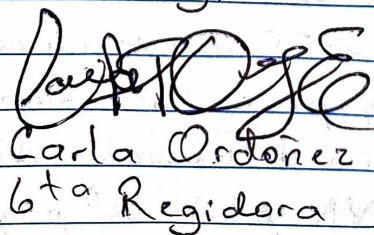 Carla Ordoñez
6ta Regidora